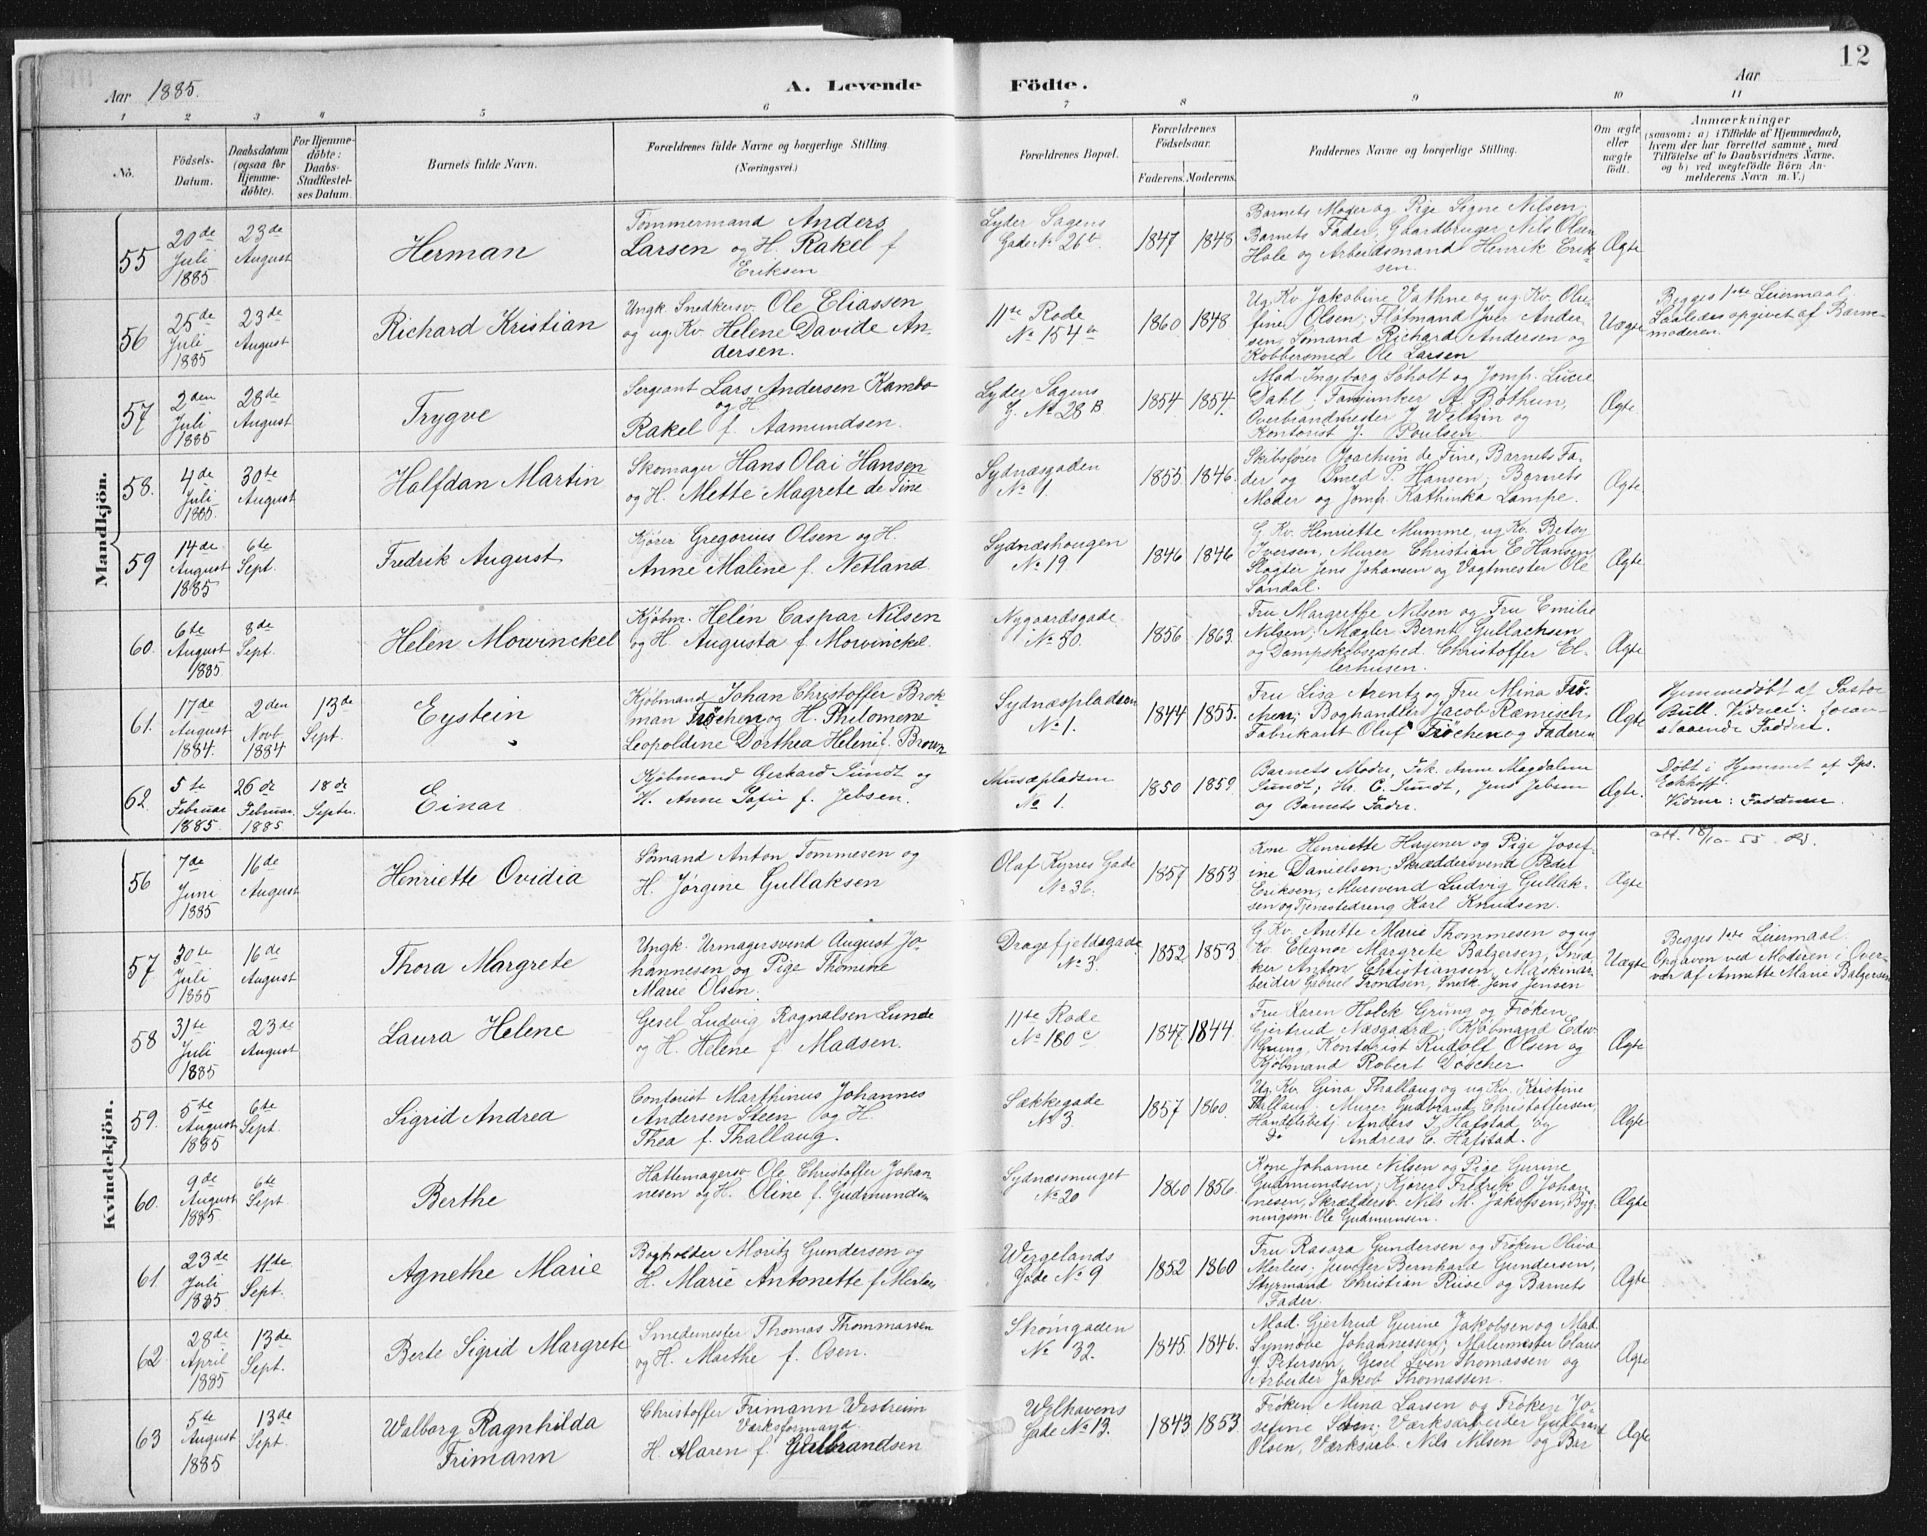 12
Aar 1885.
A. Levende Födte.
Aar
1 2 3 4 5 6 7 8 9 10 11
No.
Födsels-Datum.
Daabsdatum (ogsaa for Hjemme-döbte).
For Hjemme-döbte: Daabs-Stadfæstel-ses Datum
Barnets fulde Navn.
Forældrenes fulde Navne og borgerlige Stilling. (Næringsvei.)
Forældrenes Bopæl.
Forældrenes Födselsaar.
Faderens. Moderens.
Faddernes Navne og borgerlige Stilling.
Om ægte eller uægte födt.
Anmærkninger
(saasom: a) i Tilfælde af Hjemmedaab, hvem der har forrettet samme, med Tilföielse af to Daabsvidners Navne, og b) ved uægtefödte Börn An-melderens Navn m. V.)
Mandkjön.
55
20de Juli 1885
23de August
Herman
Tømmermand Anders
Larsen og H. Rakel f
Eriksen
Lyder Sagens
Gade No 26b
1847
1848
Barnets Moder og Pige Signe Nilsen;
Barnets Fader, Gaardbruger Nils Olsen
Hole og Arbeidsmand Henrik Erik-
sen.
Ægte
56
25de Juli 1885
23de August
Richard Kristian
Ungk. Snedkersv. Ole Eliassen
og ug. Kv. Helene Davide An-
dersen.
11te Rode
No 154a
1860
1848
Ug. Kv. Jakobine Vathne og ug. Kv. Olse-
fine Olsen; Flotmand Iver Ander-
sen, Sømand Richard Andersen og
Kobbersmed Ole Larsen
Uægte
Begges 1ste Leiermaal
Saaledes opgivet af Barne-
moderen.
57
2den Juli 1885
28de August
Trygve
Sergeant Lars Andersen Kambo
og H.
Rakel f. Aamundsen.
Lyder Sagens
G. No 28 B
1854
1854.
Mad. Ingeborg Søholt og Jomf. Lucie
Dahl; Fanejunker A. Bøthun,
Overbrandmester J. Weltzin og
Kontorist J. Poulsen
Ægte
58.
4de Juli 1885.
30te August
Halfdan Martin
Skomager Hans Olai Hansen
og H. Mette Magrete de Fine
Sydnæsgaden
No 1.
1855
1846.
Skibsfører Joachim de Fine, Barnets Fa-
der og Smed P. Hansen; Barnets
Moder og Jomf. Kathinka Lampe.
Ægte
59
14de August 1885
6te Sept.
Fredrik August
Kjører Gregorius Olsen og H.
Anne Maline f. Netland
Sydnæshougen
No 19
1846
1846
G. Kv. Henriette Mumme, ug. Kv. Betsy
Iversen, Murer Christian E. Hansen
Slagter Jens Johansen og Vagtmester Ole
Sandal.
Ægte
60.
6te August 1885
8de Sept.
Helen Mowinckel
Kjøbm. Helén Caspar Nilsen
og H. Augusta f. Mowinckel.
Nygaardsgade
No 50.
1856
1863
Fru Margrethe Nilsen og Fru Emilie
Nilsen; Mægler Bernt Gullachsen
og Dampskibsexped. Christoffer El-
lerhusen.
Ægte
61.
17de August 1884.
2den Novb. 1884
13de Sept.
Eystein
Kjøbmand Johan Christoffer Brok-
man Frøchen og H. Philomene
Leopoldine Dorthea Helenic. Brown
Sydnæspladsen
No 1.
1844
1855.
Fru Lisa Arentz og Fru Mina Frø-
chen; Boghandler Jacob Ræmisch,
Fabrikant Oluf Frøchen og Faderen
Ægte
Hjemmedøbt af Pastor
Bull. Vidner: Foran-
staaende Faddere.
62.
5te Februar 1885.
26de Februar 1885
18de Septbr.
Einar
Kjøbmand Gerhard Sundt og
H. Anne Sofie f. Jebsen.
Musæpladsen
No 1.
1850
1859.
Barnets Moder, Frk. Anne Magdalene
Sundt; Hr. C. Sundt, Jens Jebsen
og Barnets Fader.
Ægte.
Døbt i Hjemmet af Sps.
Eckhoff.
Vidner: Fadderne.
Kvindekjön.
56
7de Juni 1885
16de August
Henriette Ovidia
Sømand Anton Tommesen og
H. Jørgine Gullaksen
Olaf Kyrres Gade
No 36.
1857
1853
Kone Henriette Hagener og Pige Josef-
ine Danielsen; Skræddersvend Peder
Eriksen, Mursvend Ludvig Gullak-
sen og Tjenestedreng Karl Knudsen.
Ægte
att. 18/10-55
57
30te Juli 1885
16de August
Thora Margrete
Ungk. Urmagersvend August Jo-
hannesen og Pige Thomine
Marie Olsen.
Dragefjeldsgade
No 3.
1852
1853
G. Kv. Anette Marie Thommesen og ug
Kv. Eleanor Margrete Balgersen, Sned-
ker Anton Christiansen, Maskinar-
beider Gabriel Trondsen, Snedk. Jens Jensen
Uægte
Begges 1ste Leiermaal.
Opgaven ved Moderen i Over-
vær af Annette Marie Balgersen
58
31te Juli 1885
23de August
Laura Helene
Gesel Ludvig Ragnalsen Lunde
og H. Helene f Madsen.
11te Rode
No 180 c
1847
1844.
Fru Karen Holck Grung og Frøken
Gjertrud Næsgaard; Kjøbmand Edv.
Grung, Kontorist Rudolf Olsen og
Kjøbmand Robert Døscher
Ægte
59.
5te August 1885
6te Sept.
Sigrid Andrea
Contorist Marthinus Johannes
Andersen Steen og H.
Thea f. Thallaug.
Sækkegade
No 3
1857
1860.
Ug. Kv. Gina Thallaug og ug. Kv. Kristine
Thallaug; Murer Gudbrand Christoffersen,
Handelsbetj. Anders J. Hafstad og
Do Andreas C. Hafstad.
Ægte
60.
9de August 1885
6te Sept
Berthe
Hattemagersv. Ole Christoffer Johan-
nesen og H. Oline f. Gudmundsen
Sydnæssmuget
No 20
1860
1856.
Kone Johanne Nilsen og Pige Gurine
Gudmundsen; Kjører Fredrik O. Johan-
nesen, Skræddersv. Nils M. Jakobsen, Byg-
ningsm. Ole Gudmunsen.
Ægte
61
23de Juli 1885
11de Sept.
Agnethe Marie
Bogholder Moritz Gundersen og
H. Marie Antonette f. Merlees
Wergelands
Gade No 9
1852
1860
Fru Rasora Gundersen og Frøken Oliva
Merlees; Juveler Bernhard Gundersen,
Styrmand Christian Riise og Barnets
Fader.
Ægte
62
28de April 1885
13de Sept.
Berte Sigrid Margrete
Smedemester Thomas Thommasen
og H. Marthe f. Osen.
Strømgaden
No 32.
1845
1846.
Mad. Gjertrud Gurine Jakobsen og Mad.
Synnøve Johannessen; Malermester Claus
J. Petersen, Gesel Sven Thomassen og
Arbeider Jakob Thomassen.
Ægte
63
5te August 1885
13de Sept.
Walborg Ragnhilda
Frimann
Christoffer Frimann Vestreim
Værksformand
H. Maren f. Gulbrandsen
Welhavens
Gade No 13.
1843
1853.
Frøken Mina Larsen og Frøken Jo-
sefine Steen; Værksarbeider Gulbrand
Olsen, Værksarb. Nils Nilsen og Bar
Ægte